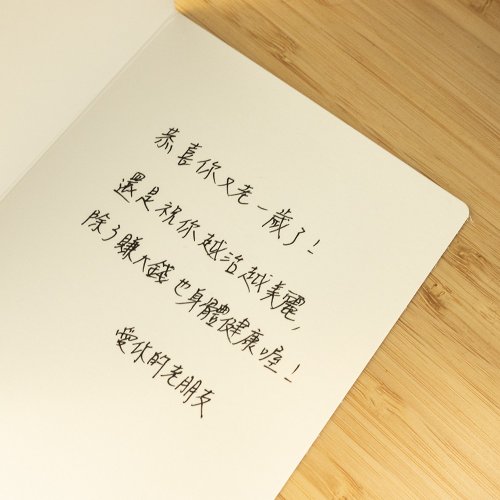 恭喜你又老一歲了!
還是祝你越治越美麗,
除了賺大錢也身體健康喔!
愛你的老朋友